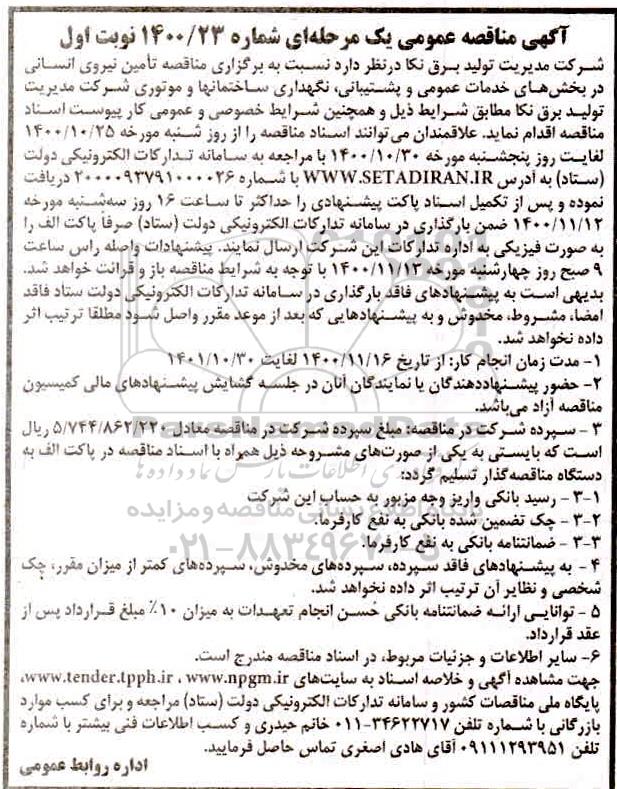 آگهی مناقصه عمومی یک مرحله‌ای شماره ۱۴۰۰/۲۳ نوبت اول
شرکت مدیریت تولید برق نکا درنظر دارد نسبت به برگزاری مناقصه تأمین نیروی انسانی
در بخش‌های خدمات عمومی و پشتیبانی، نگهداری ساختمانها و موتوری شرکت مدیریت
تولید برق نکا مطابق شرایط ذیل و همچنین شرایط خصوصی و عمومی کار پیوست اسناد
مناقصه اقدام نماید. علاقمندان می‌توانند اسناد مناقصه را از روز شنبه مورخه ۱۴۰۰/۱۰/۲۵
لغایت روز پنجشنبه مورخه ۱۴۰۰/۱۰/۳۰ با مراجعه به سامانه تدارکات الکترونیکی دولت
(ستاد) به آدرس WWW.SETADIRAN.IR با شماره ۲۰۰۰۰۹۳۷۹۱۰۰۰۰۲۶ دریافت
نموده و پس از تکمیل اسناد پاکت پیشنهادی را حداکثر تا ساعت ۱۶ روز سه‌شنبه مورخه
۱۴۰۰/۱۱/۱۲ ضمن بارگذاری در سامانه تدارکات الکترونیکی دولت (ستاد) صرفاً پاکت الف را
به صورت فیزیکی به اداره تدارکات این شرکت ارسال نمایند. پیشنهادات واصله راس ساعت
۹ صبح روز چهارشنبه مورخه ۱۴۰۰/۱۱/۱۳ با توجه به شرایط مناقصه باز و قرائت خواهد شد.
بدیهی است به پیشنهادهای فاقد بارگذاری در سامانه تدارکات الکترونیکی دولت ستاد فاقد
امضا، مشروط، مخدوش و به پیشنهادهایی که بعد از موعد مقرر واصل شود مطلقا ترتیب اثر
داده نخواهد شد.
۱- مدت زمان انجام کار: از تاریخ ۱۴۰۰/۱۱/۱۶ لغایت ۱۴۰۱/۱۰/۳۰
۲- حضور پیشنهاددهندگان یا نمایندگان آنان در جلسه گشایش پیشنهادهای مالی کمیسیون
مناقصه آزاد می‌باشد.
۳ - سپرده شرکت در مناقصه: مبلغ سپرده شرکت در مناقصه معادل ۵/۷۴۴/۸۶۲/۲۲۰ ریال
است که بایستی به یکی از صورت‌های مشروحه ذیل همراه با اسناد مناقصه در پاکت الف به
دستگاه مناقصه‌گذار تسلیم گردد:
۳-۱ - رسید بانکی واریز وجه مزبور به حساب این شرکت
۳-۲ - چک تضمین شده بانکی به نفع کارفرما.
۳-۳ - ضمانتنامه بانکی به نفع کارفرما.
۴ - به پیشنهادهای فاقد سپرده، سپرده‌های مخدوش، سپرده‌های کمتر از میزان مقرر، چک
شخصی و نظایر آن ترتیب اثر داده نخواهد شد.
۵ - توانایی ارائه ضمانتنامه بانکی حُسن انجام تعهدات به میزان ۱۰٪ مبلغ قرارداد پس از
عقد قرارداد.
۶- سایر اطلاعات و جزئیات مربوط، در اسناد مناقصه مندرج است.
جهت مشاهده آگهی و خلاصه اسناد به سایت‌های www.tender.tpph.ir ، www.npgm.ir،
پایگاه ملی مناقصات کشور و سامانه تدارکات الکترونیکی دولت (ستاد) مراجعه و برای کسب موارد
بازرگانی با شماره تلفن ۳۴۶۲۲۷۱۷-۰۱۱ خانم حیدری و کسب اطلاعات فنی بیشتر با شماره
تلفن ۰۹۱۱۱۲۹۳۹۵۱ آقای هادی اصغری تماس حاصل فرمایید.
اداره روابط عمومی